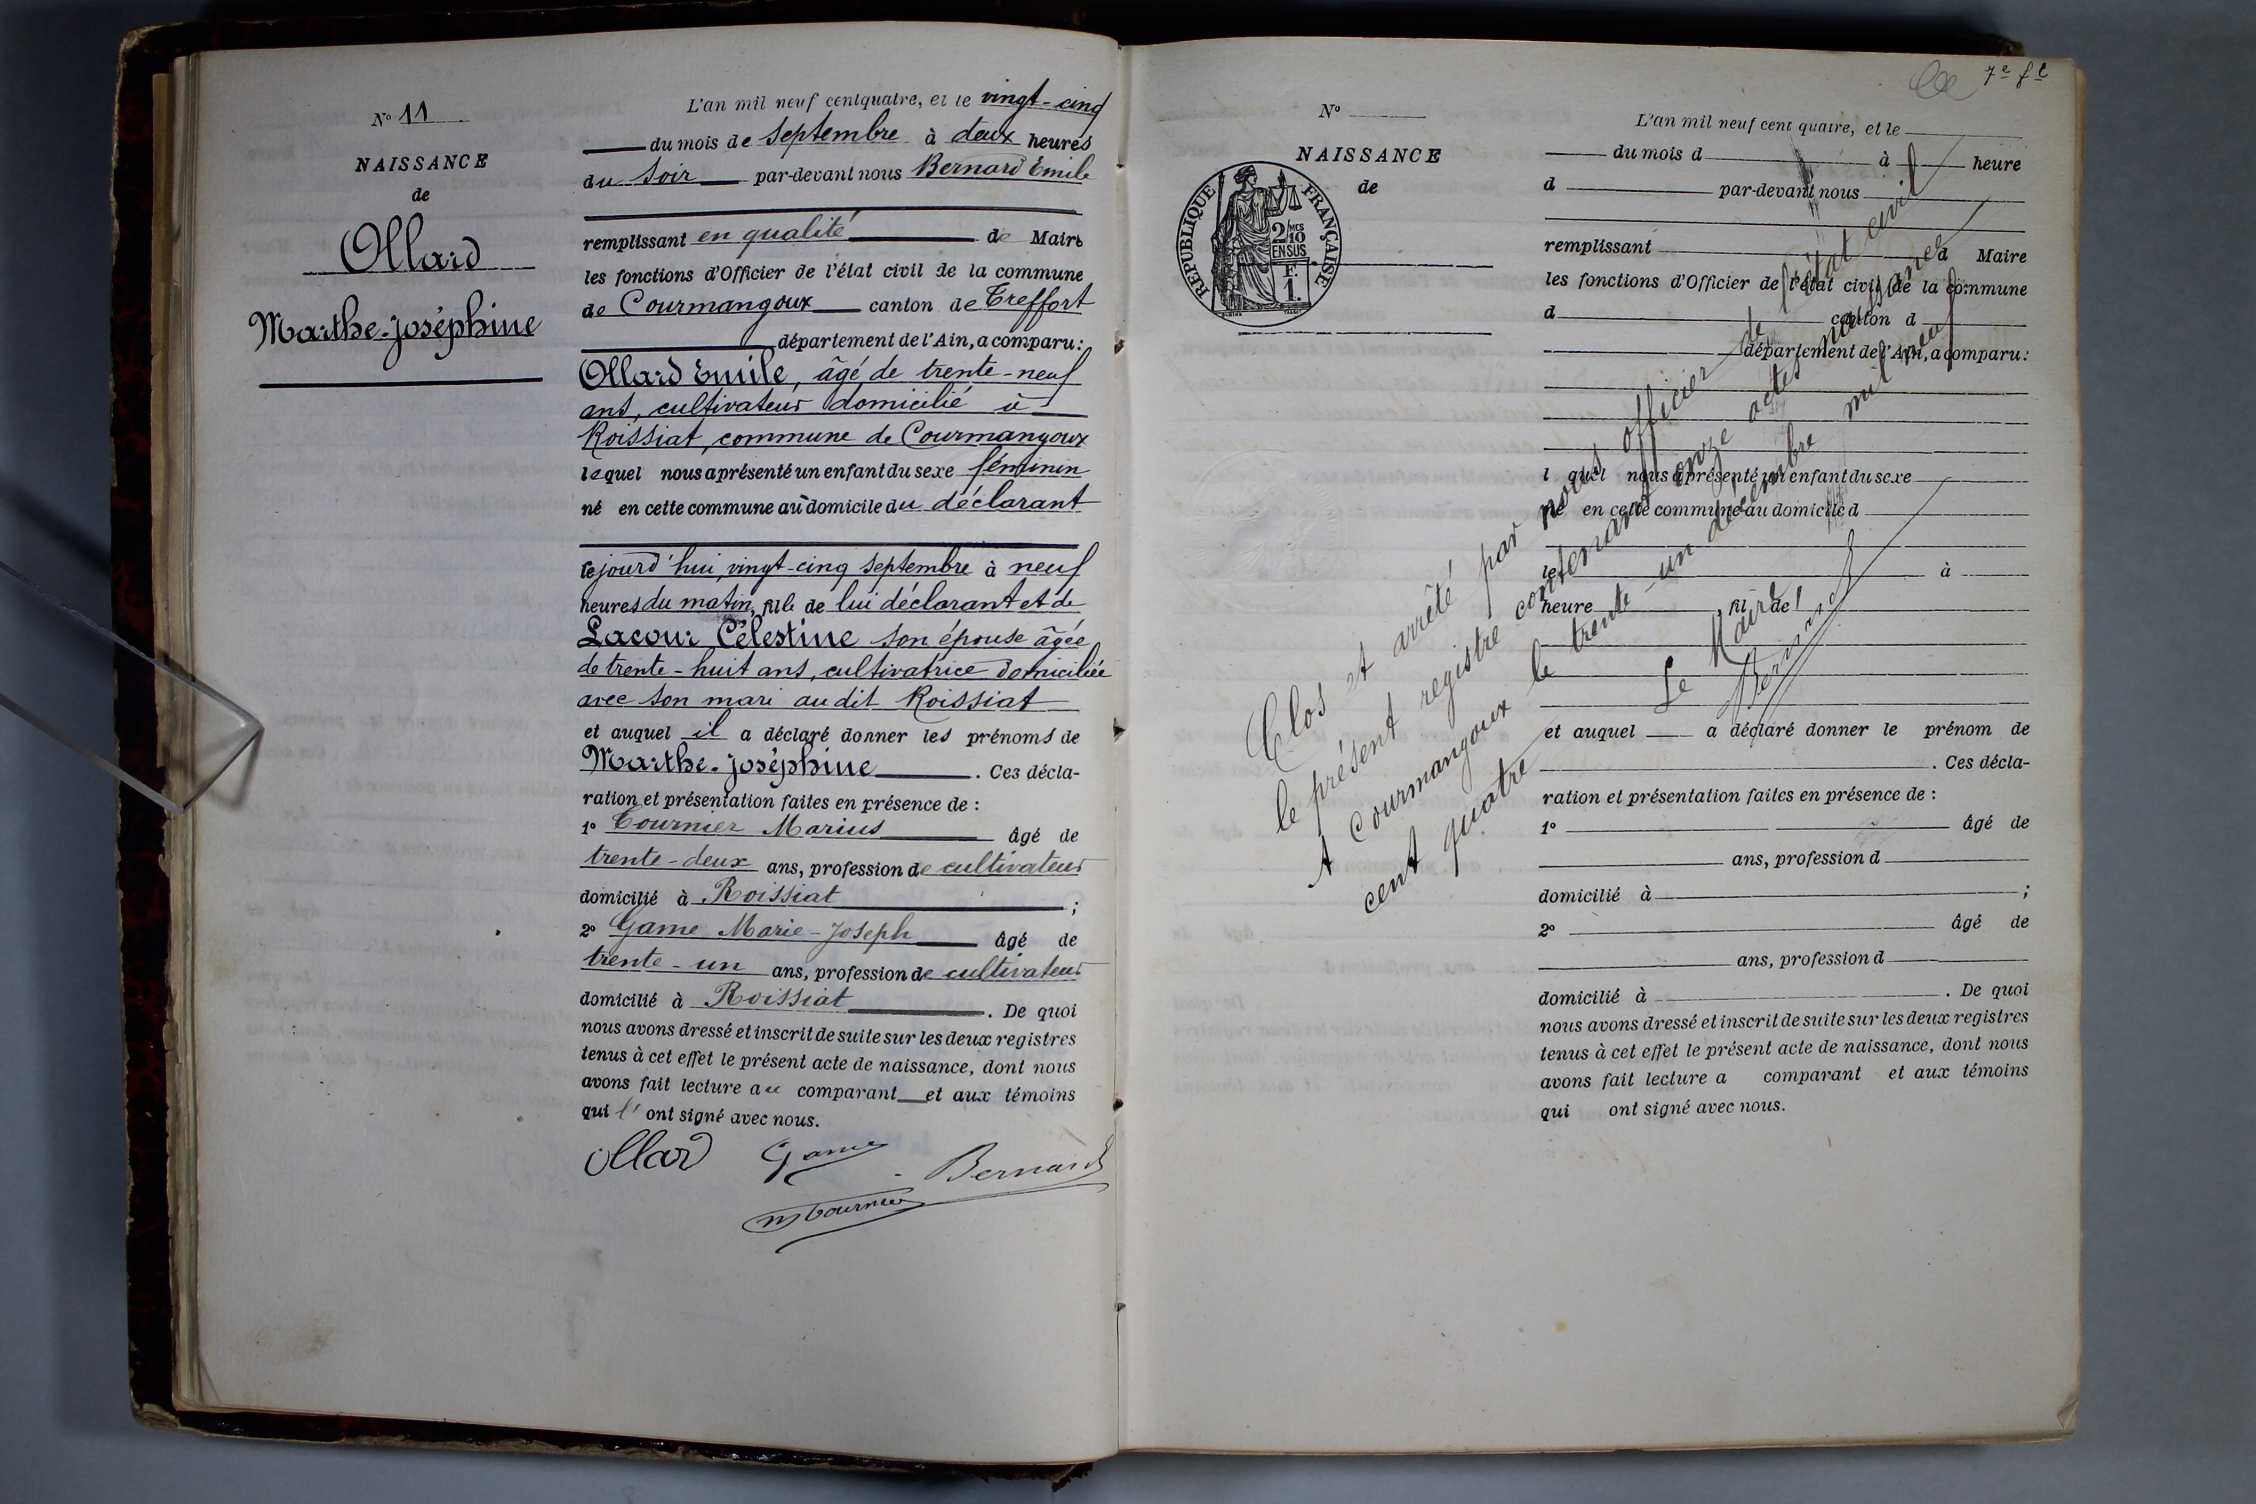 N° 11
NAISSANCE
de
Ollard
Marthe-Joséphine
L'an mil neuf cent quatre, et le vingt-cinq
du mois de septembre à deux heures
du soir par-devant nous Bernard Emile
remplissant en qualité de Maire
les fonctions d'Officier de l'état civil de la commune
de Courmangoux canton de Treffort
département de l'Ain, a comparu:
Ollard Emile, âgé de trente-neuf
ans, cultivateur domicilié à
Roissiat, commune de Courmangoux
lequel nous a présenté un enfant du sexe féminin
né en cette commune au domicile du déclarant
cejourd'hui, vingt-cinq septembre à neuf
heures du matin, fille de lui déclarant et de
Lacour Célestine son épouse âgée
de trente-huit ans, cultivatrice domiciliée
avec son mari audit Roissiat
et auquel il a déclaré donner les prénoms de
Marthe-Joséphine. Ces décla-
ration et présentation faites en présence de :
1° Tournier Marius âgé de
trente-deux ans, profession de cultivateur
domicilié à Roissiat ;
2° Game Marie-Joseph âgé de
trente-un ans, profession de cultivateur
domicilié à Roissiat. De quoi
nous avons dressé et inscrit de suite sur les deux registres
tenus à cet effet le présent acte de naissance, dont nous
avons fait lecture au comparant et aux témoins
qui l'ont signé avec nous.
Ollard Game Bernard
M Tournier
7e ft
N°
NAISSANCE
de
REPUBLIQUE FRANÇAISE
2/10 MES
EN SUS
F.
1.
L'an mil neuf cent quatre, et le
du mois d à heure
d par-devant nous
remplissant d Maire
les fonctions d'Officier de l'état civil de la commune
d canton d
département de l'Ain, a comparu:
l quel nous a présenté un enfant du sexe
né en cette commune au domicile d
le à
heure , fil de
et auquel a déclaré donner le prénom de
. Ces décla-
ration et présentation faites en présence de :
1° âgé de
ans, profession d
domicilié à ;
2° âgé de
ans, profession d
domicilié à . De quoi
nous avons dressé et inscrit de suite sur les deux registres
tenus à cet effet le présent acte de naissance, dont nous
avons fait lecture a comparant et aux témoins
qui ont signé avec nous.
Clos et arrêté par nous officier de l'état civil
le présent registre contenant onze actes naissances
A Courmangoux le trente-un décembre mil neuf
cent quatre
Le Maire
Bernard